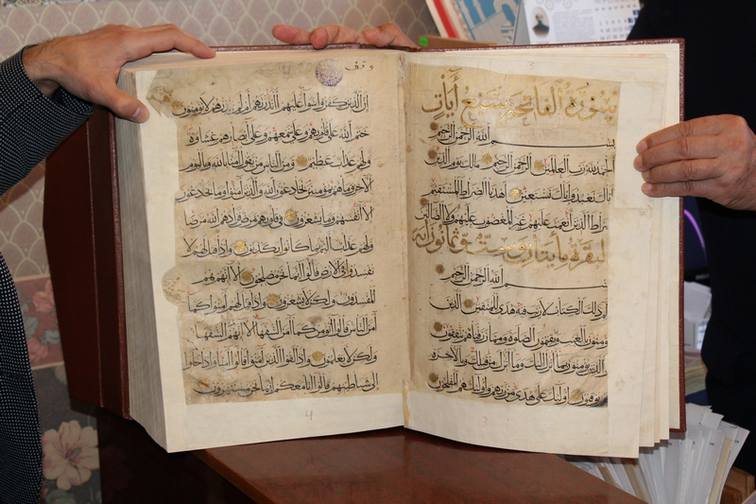 سورة الفاتحة سبع آيات
بسم الله الرحمن الرحيم
الحمد لله رب العالمين الرحمن الرحيم مالك يوم الدين
اياك نعبد واياك نستعين اهدنا الصراط المستقيم
صراط الذين انعمت عليهم غير المغضوب عليهم ولا الضالين
البقرة مايتان وست وثمانون آية
بسم الله الرحمن الرحيم
الم ذلك الكتاب لا ريب فيه هدى للمتقين الذين
يومنون بالغيب ويقيمون الصلوة ومما رزقناهم ينفقون
والذين يومنون بما انزل اليك وما انزل من قبلك وبالاخرة
هم يوقنون اولئك على هدى من ربهم واولئك هم المفلحون
3
وقف
ان الذين كفروا سواء عليهم أأنذرتهم ام لم تنذرهم لا يومنون
ختم الله على قلوبهم وعلى سمعهم وعلى ابصارهم غشاوة
ولهم عذاب عظيم ومن الناس من يقول امنا بالله وباليوم
الاخر وما هم بمومنين يخادعون الله والذين امنوا وما يخادعون
الا انفسهم وما يشعرون في قلوبهم مرض فزادهم الله مرضا
ولهم عذاب اليم بما كانوا يكذبون واذا قيل لهم لا
تفسدوا في الارض قالوا انما نحن مصلحون الا انهم هم
المفسدون ولكن لا يشعرون واذا قيل لهم امنوا كما
امن الناس قالوا انومن كما امن السفها الا انهم هم السفها
ولكن لا يعلمون واذا لقوا الذين امنوا قالوا امنا واذا خلوا
الى شياطينهم قالوا انا معكم انما نحن مستهزون
4